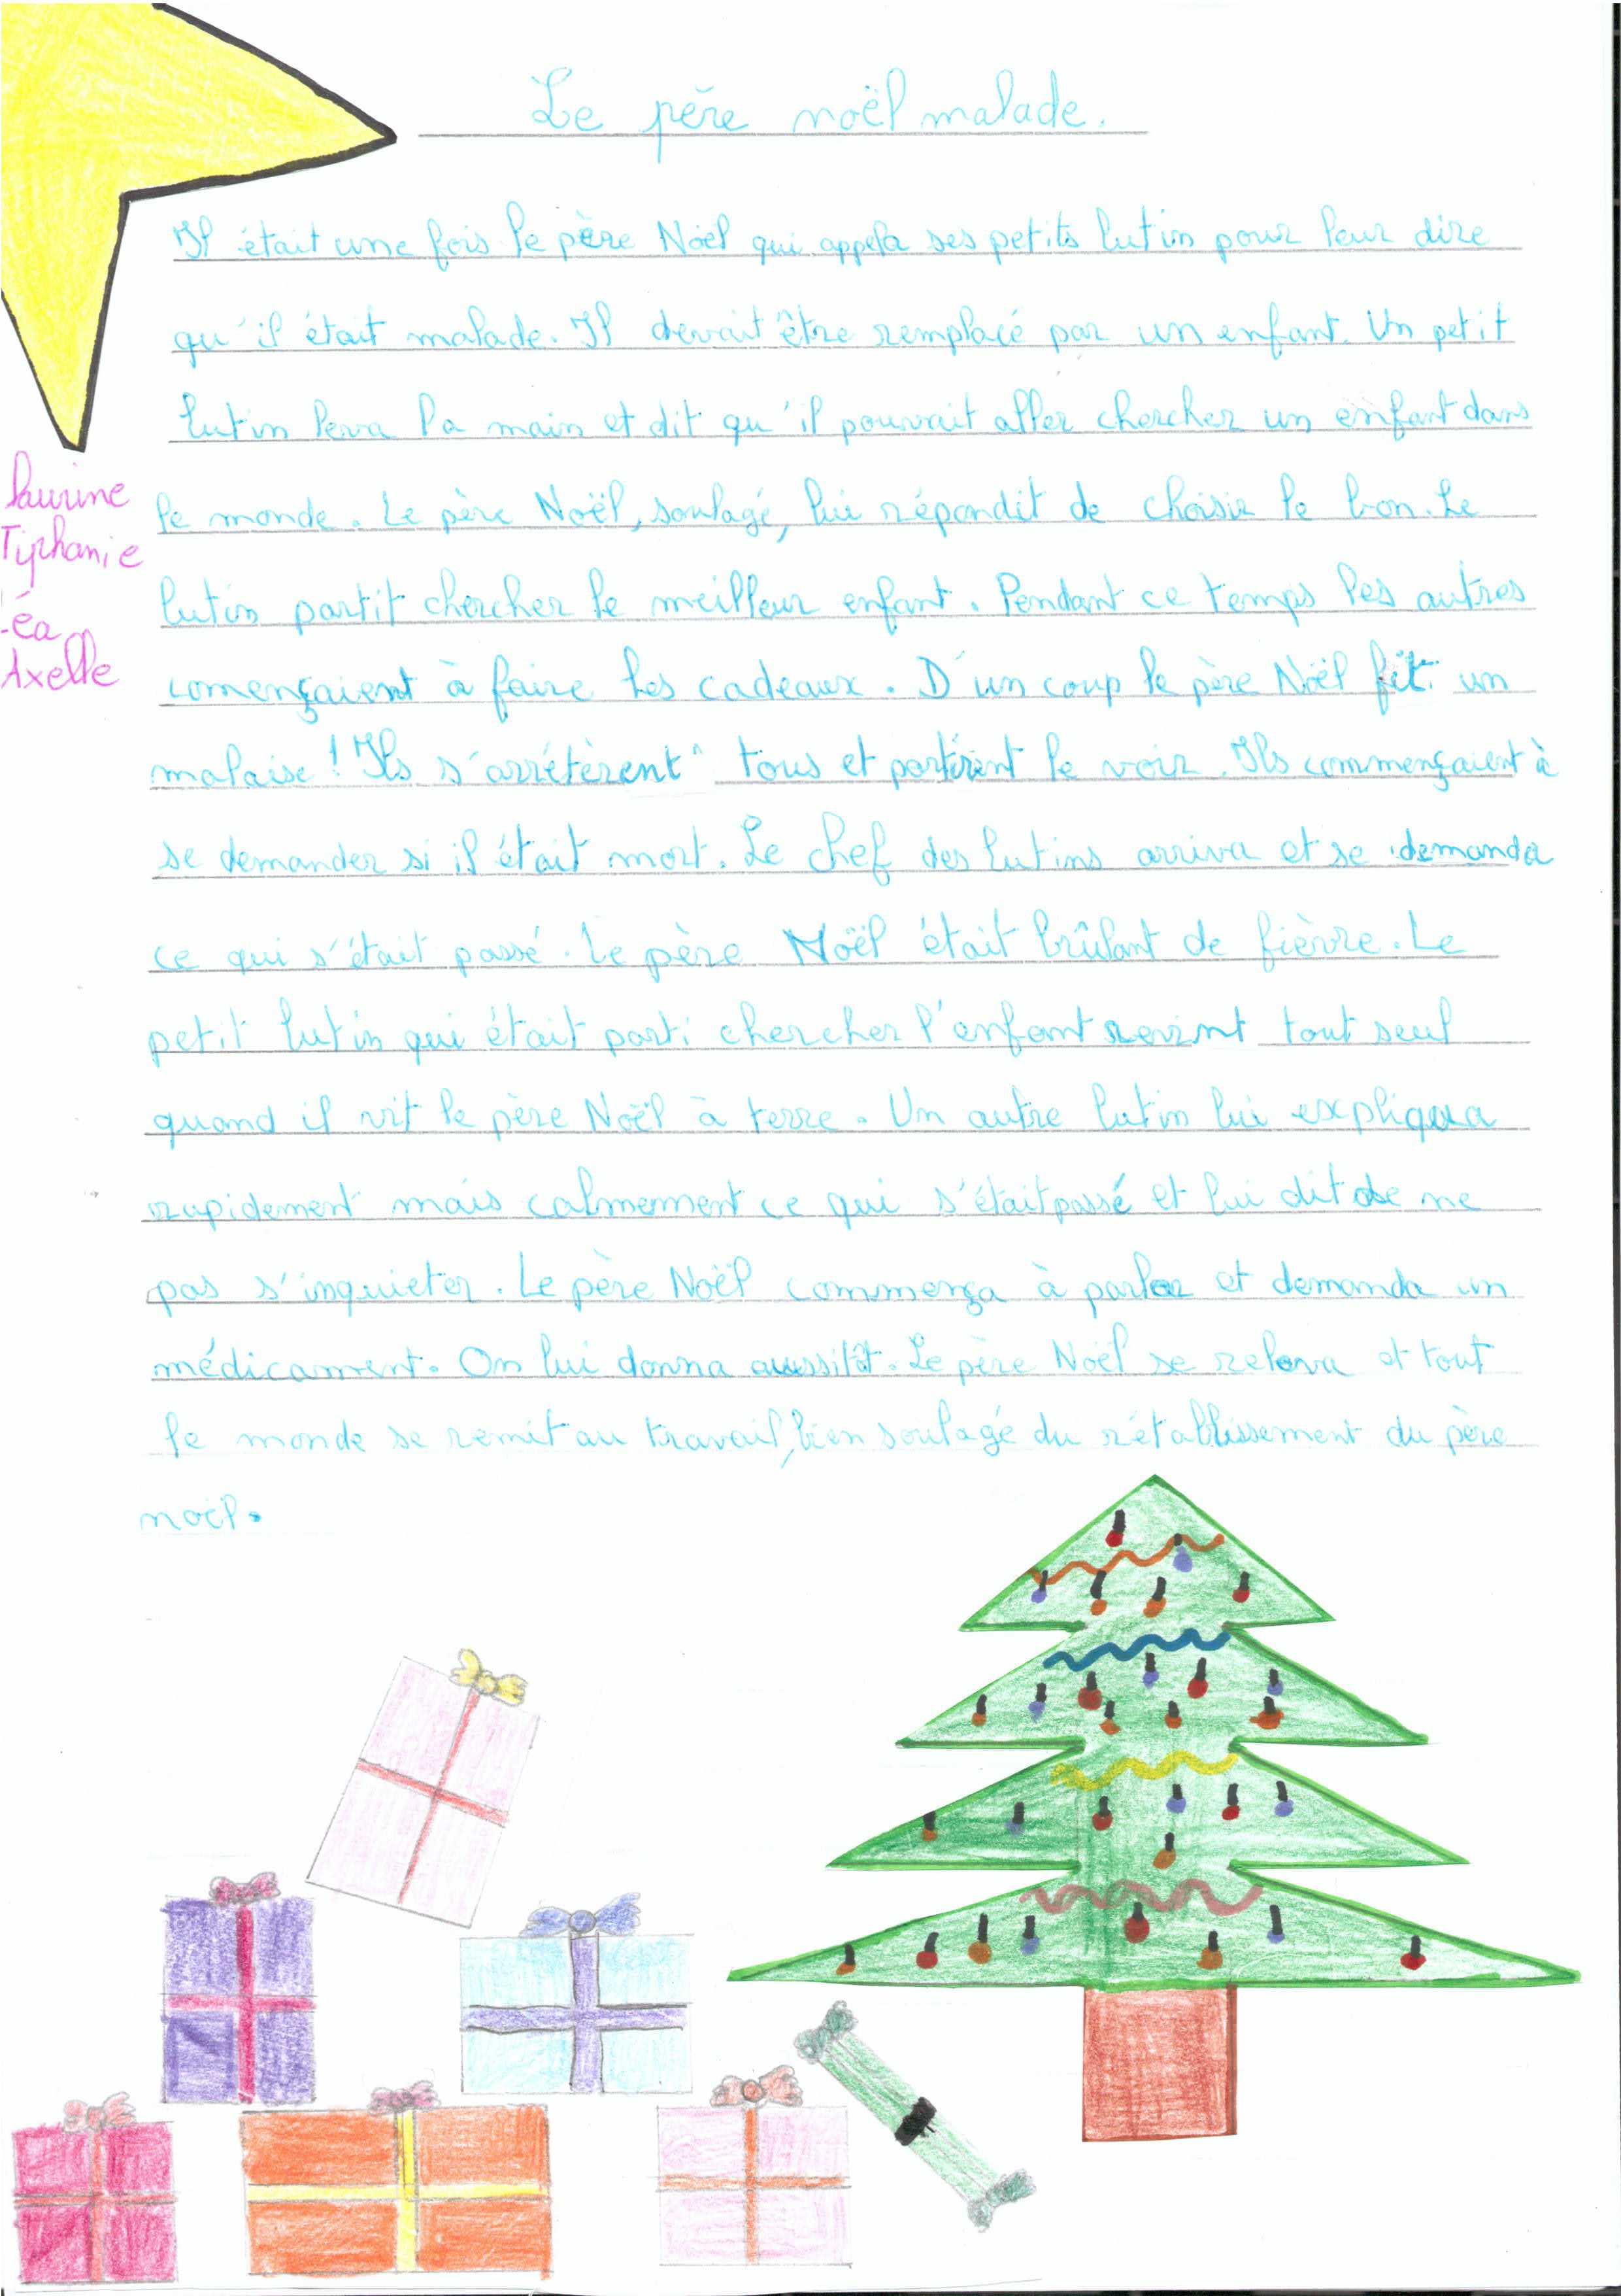 Le père noël malade.
Il était une fois le père Noël qui appela ses petits lutin pour leur dire
qu'il était malade. Il devait être remplacé par un enfant. Un petit
lutin leva la main et dit qu'il pouvait aller chercher un enfant dans
le monde. Le père Noël, soulagé, lui répondit de choisir le bon. Le
lutin partit chercher le meilleur enfant. Pendant ce temps les autres
començaient à faire les cadeaux. D'un coup le père Noël fit un
malaise ! Ils s'arrétèrent tous et partirent le voir. Ils commençaient à
se demander si il était mort. Le chef des lutins arriva et se demanda
ce qui s'était passé. Le père Noël était brûlant de fièvre. Le
petit lutin qui était parti chercher l'enfant revint tout seul
quand il vit le père Noël à terre. Un autre lutin lui expliqua
rapidement mais calmement ce qui s'était passé et lui dit de ne
pas s'inquieter. Le père Noël commença à parler et demanda un
médicament. On lui donna aussitôt. Le père Noël se releva et tout
le monde se remit au travail, bien soulagé du rétablissement du père
noël.
Laurine
Typhanie
éa
Axelle